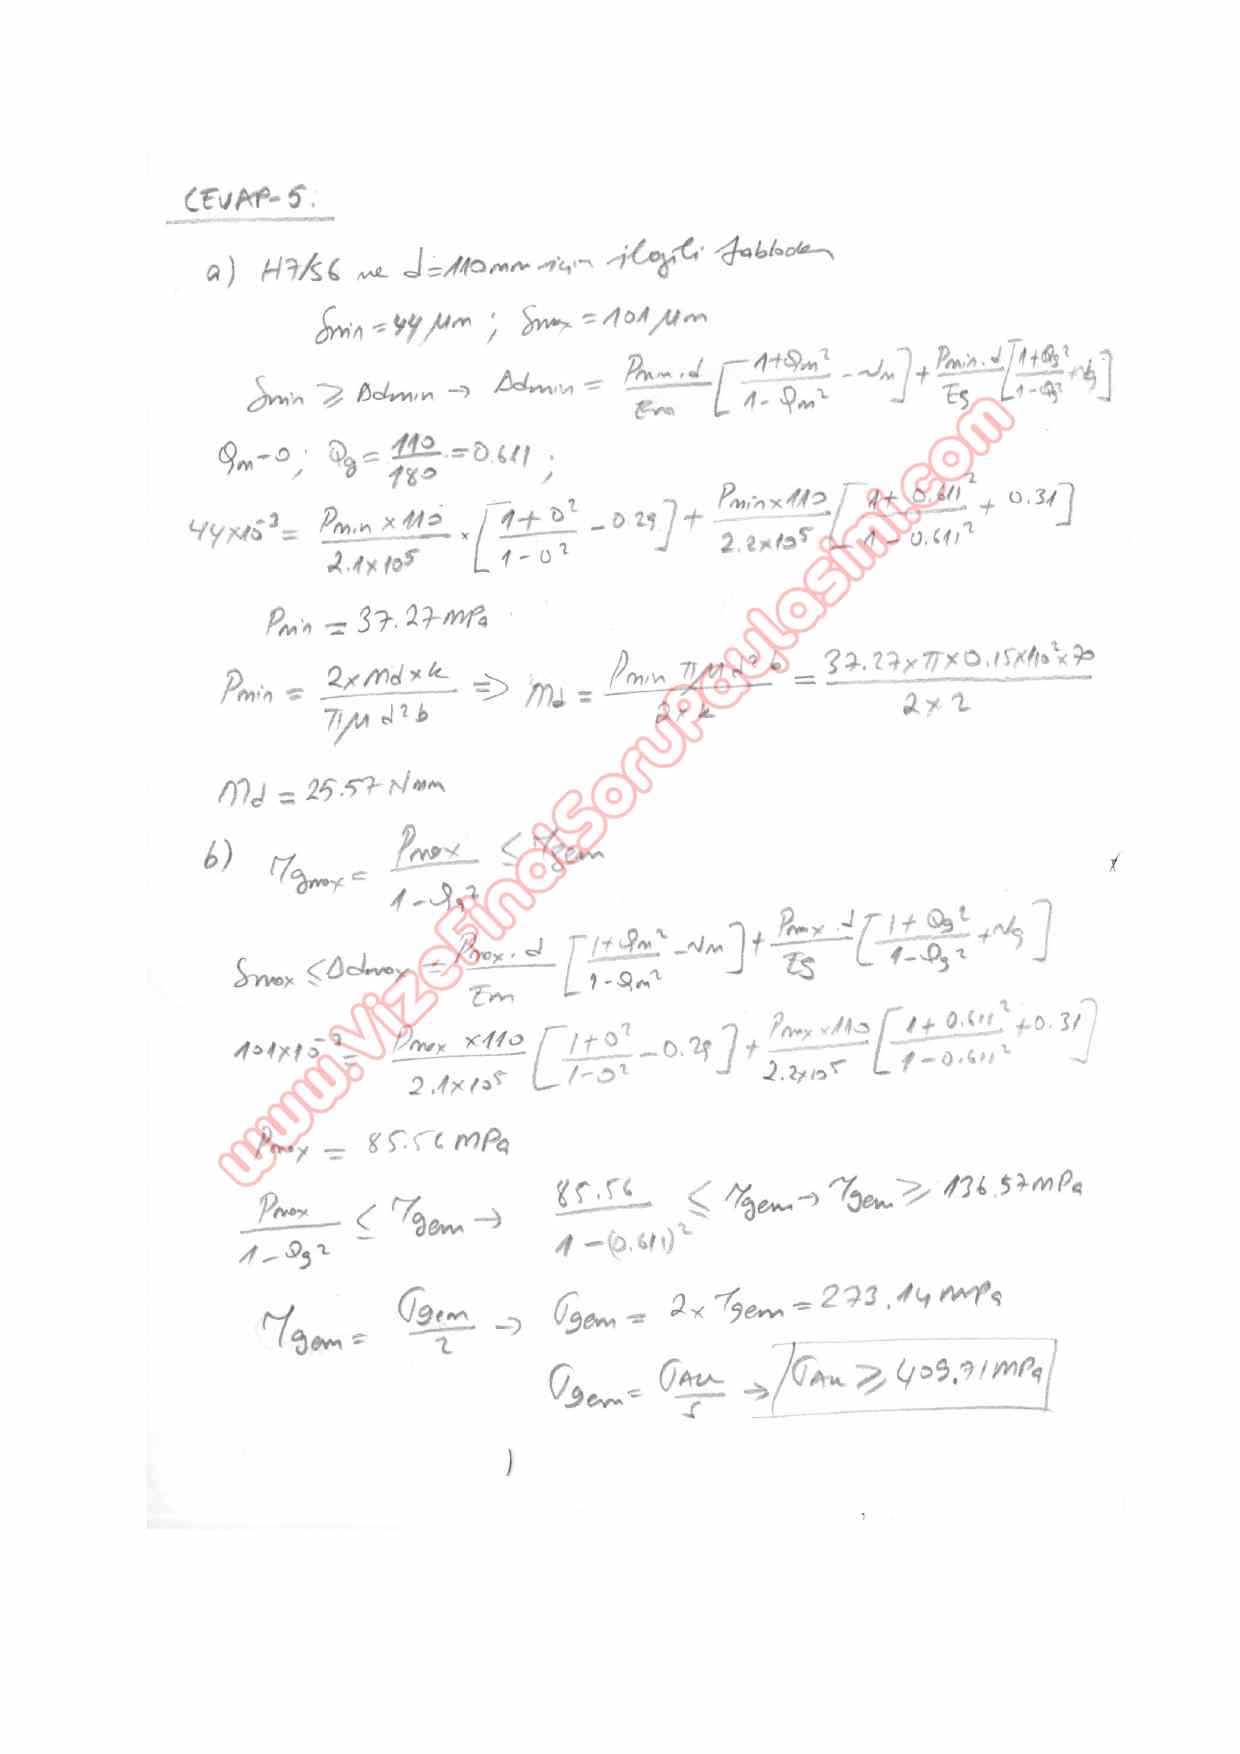 CEVAP-5:
a) H7/s6 ve d=110mm için ilgili tablodan
δmin = 44 μm ; δmax = 101 μm
δmin ≥ Δdmin → Δdmin = Pmin.d/Em [1+Qm²/1-Qm² - νm] + Pmin.d/Eg [1+Qg²/1-Qg² + νg]
Qm=0 ; Qg = 110/180 = 0.611 ;
44x10⁻³ = Pmin x 110/2.1x10⁵ x [1+0²/1-0² - 0.29] + Pmin x 110/2.2x10⁵ [1+0.611²/1-0.611² + 0.31]
Pmin = 37.27 MPa
Pmin = 2xMdxk/πμd²b ⇒ Md = Pmin πμd²b/2xk = 37.27xπx0.15x110²x70/2x2
Md = 25.57 Nmm
b) τgmax = Pmax/1-Qg² ≤ τgem
δmax ≤ Δdmax = Pmax.d/Em [1+Qm²/1-Qm² - νm] + Pmax.d/Eg [1+Qg²/1-Qg² + νg]
101x10⁻³ = Pmax x110/2.1x10⁵ [1+0²/1-0² - 0.29] + Pmax x110/2.2x10⁵ [1+0.611²/1-0.611² + 0.31]
Pmax = 85.56 MPa
Pmax/1-Qg² ≤ τgem → 85.56/1-(0.611)² ≤ τgem → τgem ≥ 136.57 MPa
τgem = σgem/2 → σgem = 2x τgem = 273.14 MPa
σgem = σAk/S → σAk ≥ 409.71 MPa
www.VizeFinalSoruPaylasimi.com